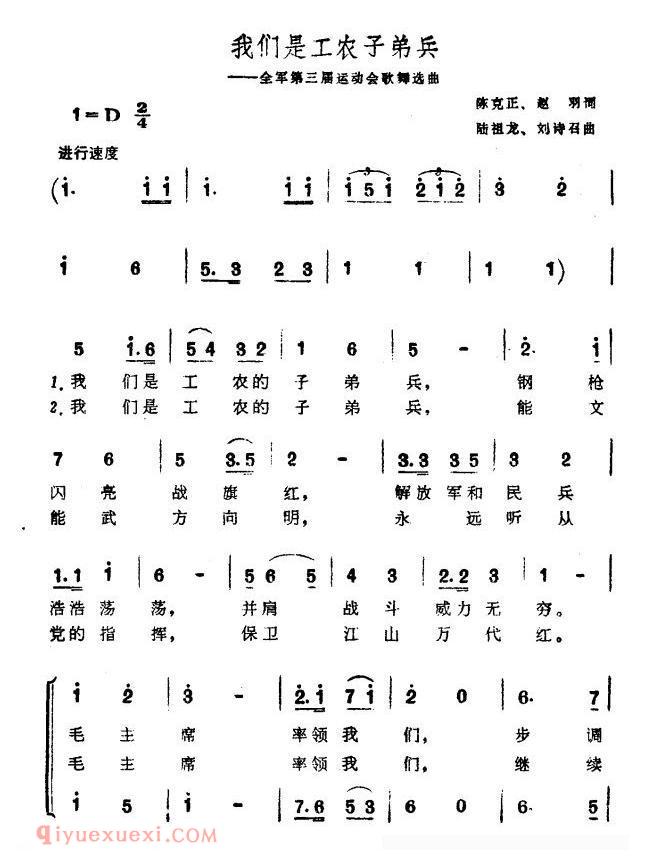 我们是工农子弟兵
——全军第三届运动会歌舞选曲
1=D 2/4
陈克正、赵羽词
陆祖龙、刘诗召曲
进行速度
(i. i i | i. i i | i 5 i 2 i 2 | 3 2 |
i 6 | 5. 3 2 3 | 1 1 | 1 1) |
5 i.6 | 5 4 3 2 | 1 6 | 5 - | 2. i |
1.我们是工农的子弟兵,钢枪
2.我们是工农的子弟兵,能文
7 6 | 5 3.5 | 2 - | 3.3 3 5 | 3 2 |
闪亮战旗红,解放军和民兵
能武方向明,永远听从
1.1 i | 6 - | 5 6 5 | 3 3 | 2.2 3 | 1 - |
浩浩荡荡,并肩战斗威力无穷。
党的指挥,保卫江山万代红。
i 2 | 3 - | 2.i 7 i | 2 0 | 6. 7 |
毛主席率领我们,步调
毛主席率领我们,继续
i 5 | i - | 7.6 5 5 | 6 0 | 6. 5 |
qiyuexuexi.com